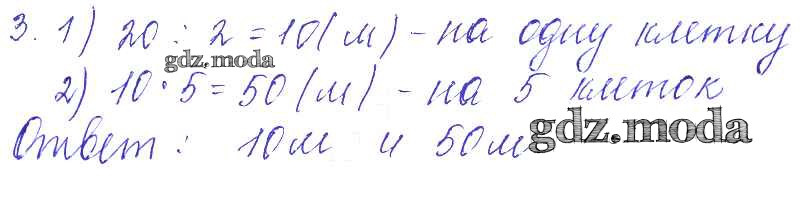 3. 1) 20 : 2 = 10 (м) - на одну клетку
gdz.moda
2) 10 · 5 = 50 (м) - на 5 клеток
Ответ : 10м и 50м
gdz.moda